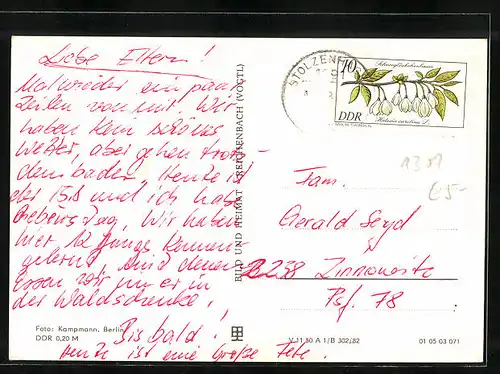 Liebe Eltern!
Mal wieder ein paar
Zeilen von mir. Wir
haben kein schönes
Wetter, aber gehen trotz-
dem baden. Heute ist
der 15.8 und ich hab
Geburtstag. Wir haben
hier 12 Jungs kennen
gelernt, mit denen
Essen wir in
der Waldschenke.
Bis bald!
Heute ist eine Große Fete.
Foto: Kampmann, Berlin
DDR 0,20 M
BILD UND HEIMAT REICHENBACH (VOGTL)
V 11 50 A 1/B 302/82
01 05 03 071
STOLZEN
10
Schneeglöckchenbaum
DDR
Halesia carolina L.
1301
€5-
Fam.
Gerald Seyd
2238 Zinnowitz
Psf. 78